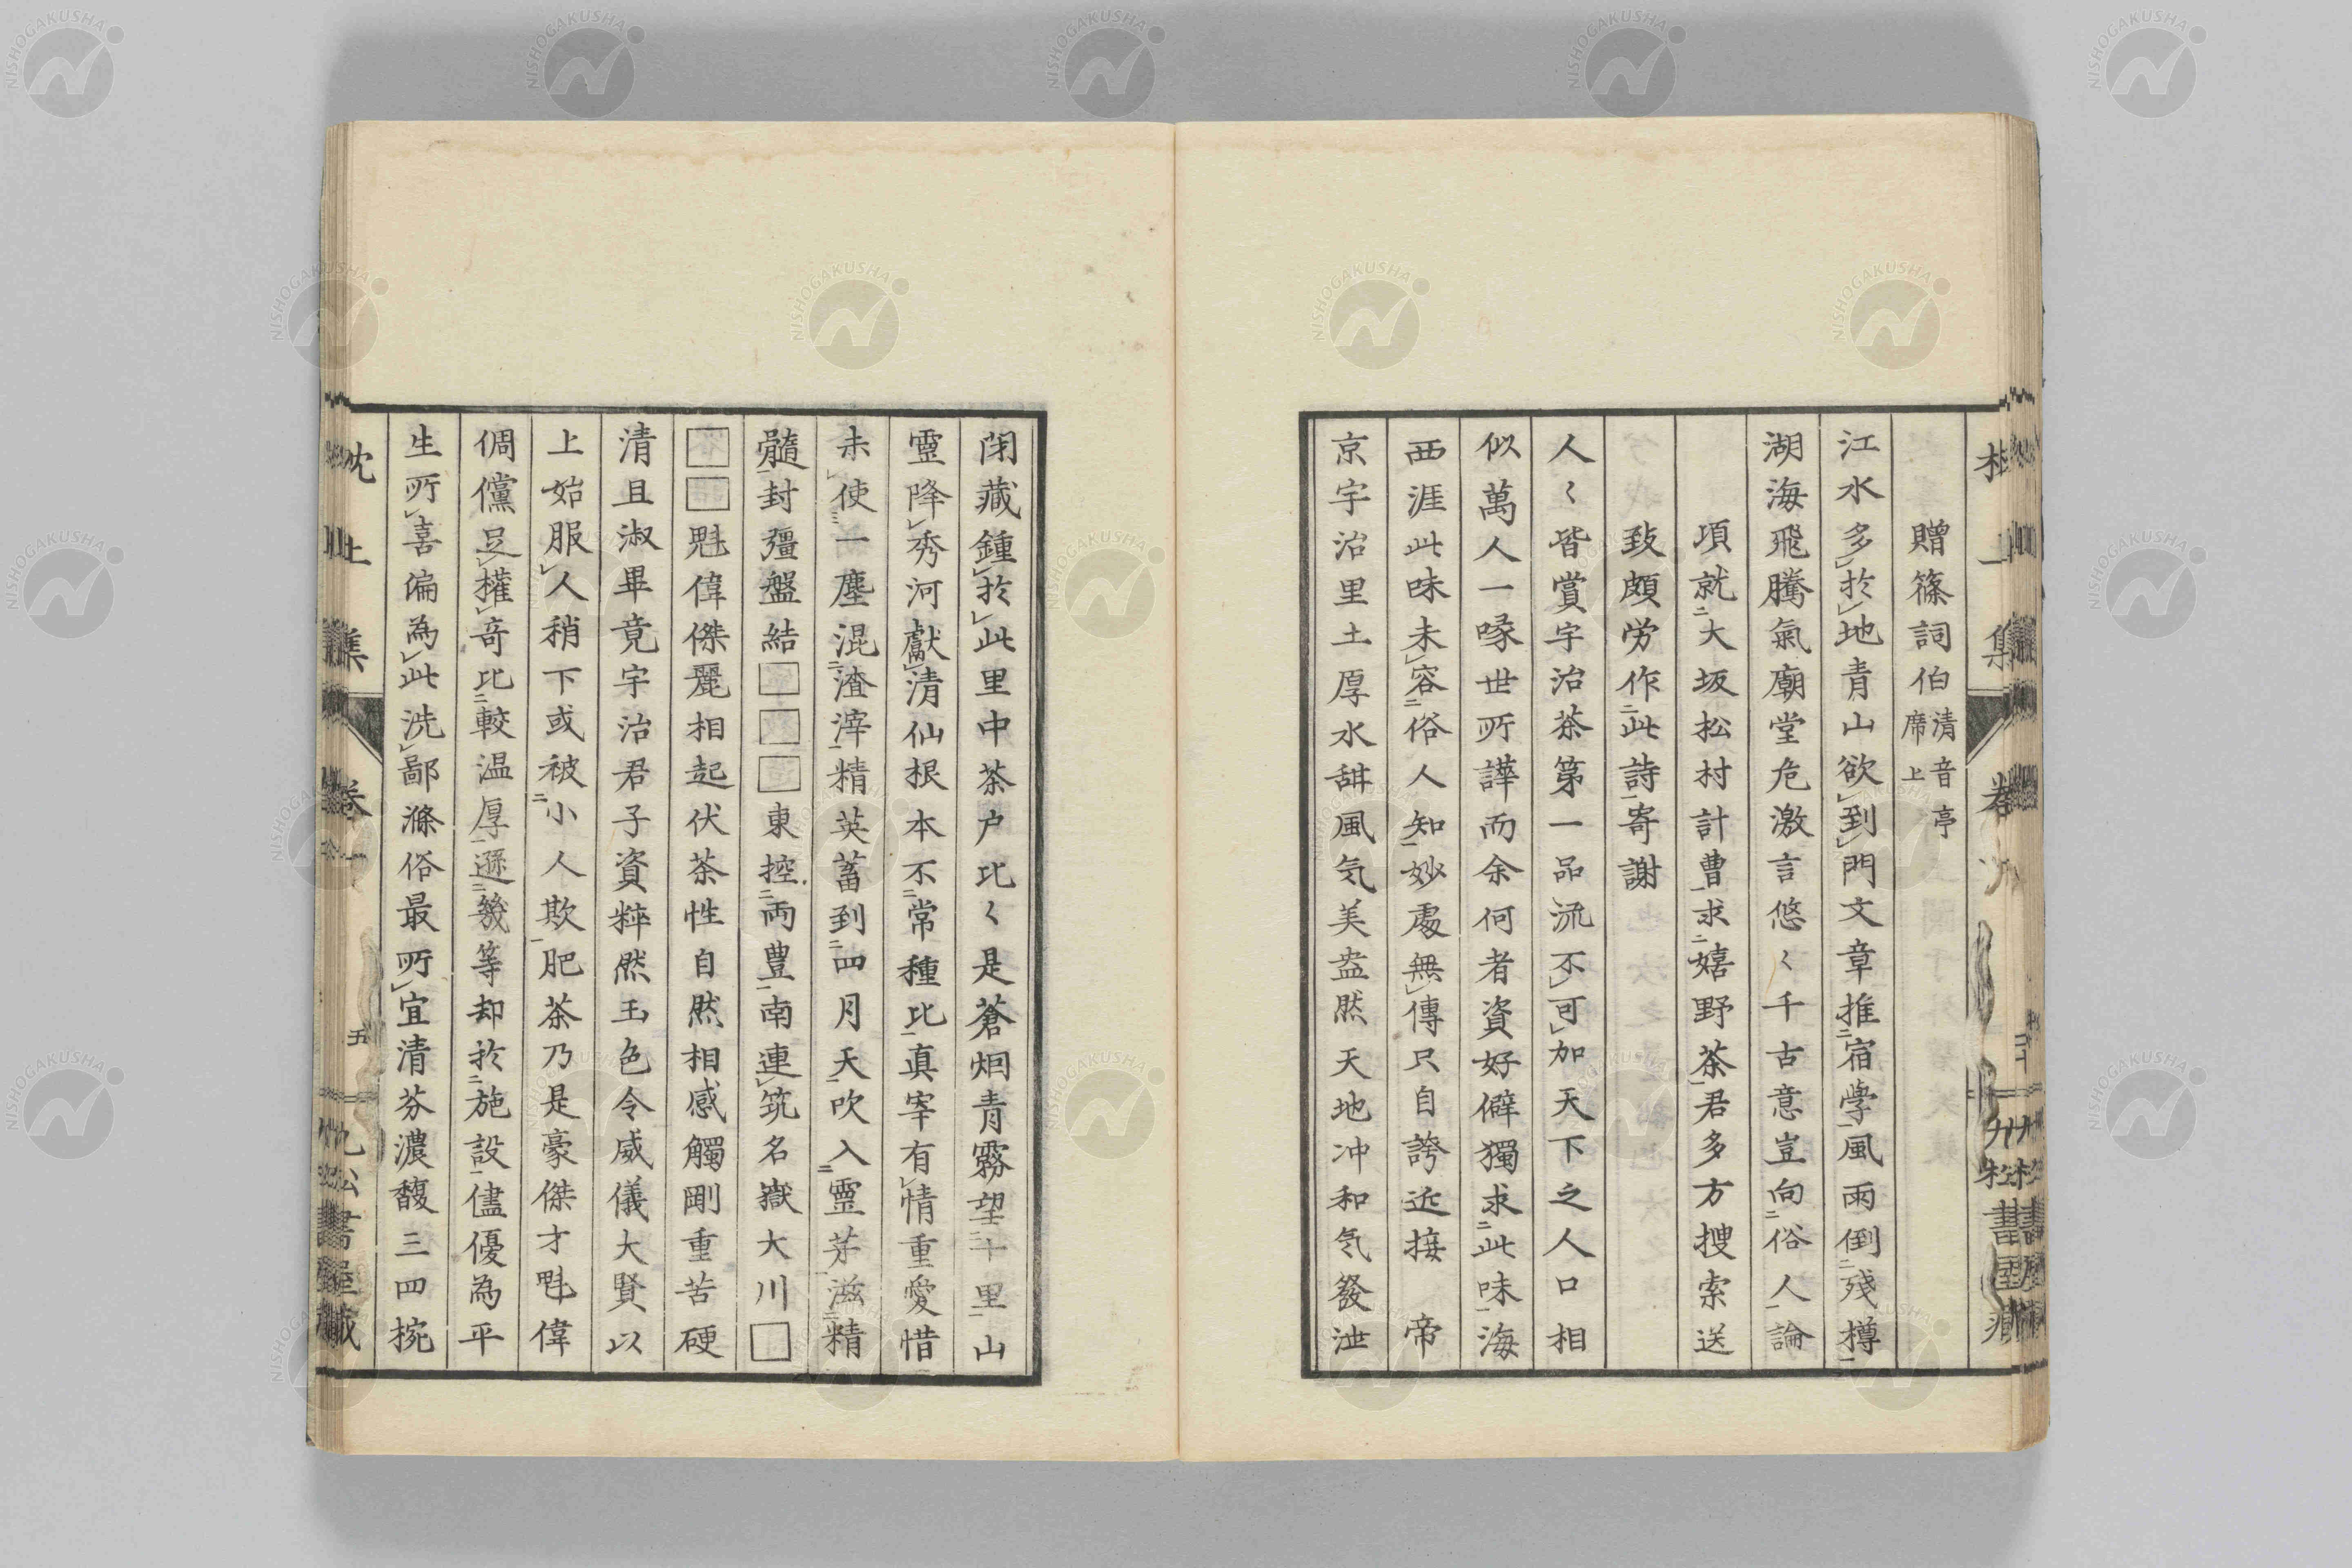 贈篠詞伯清音亭席上
江水多於地青山欲到門文章推宿學風雨倒殘樽
湖海飛騰氣廟堂危激言悠〻千古意豈向俗人論
項就大坂松村計曹求嬉野茶君多方搜索送
致頗労作此詩寄謝
人〻皆賞宇治茶第一品流不可加天下之人口相
似萬人一喙世所譁而余何者資好僻獨求此味海
西涯此味未容俗人知妙處無傳只自誇近接 帝
京宇治里土厚水甜風気美盎然天地冲和気發泄
閉藏鍾於此里中茶户比〻是蒼烟青霧望十里山
靈降秀河獻清仙根本不常種比真宰有情重愛惜
未使一塵混渣滓精英蓄到四月天吹入靈芽滋精
髓封疆盤結□□□東控両豊南連筑名嶽大川□
□□魁偉傑麗相起伏茶性自然相感觸剛重苦硬
清且淑畢竟宇治君子資粹然玉色令威儀大賢以
上始服人稍下或被小人欺肥茶乃是豪傑才魁偉
倜儻足權奇比較温厚遜幾等却於施設儘優為平
生所喜偏為此洗鄙滌俗最所宜清芬濃馥三四椀
枕上集 卷一
五
九松書屋藏
NISHOGAKUSHA